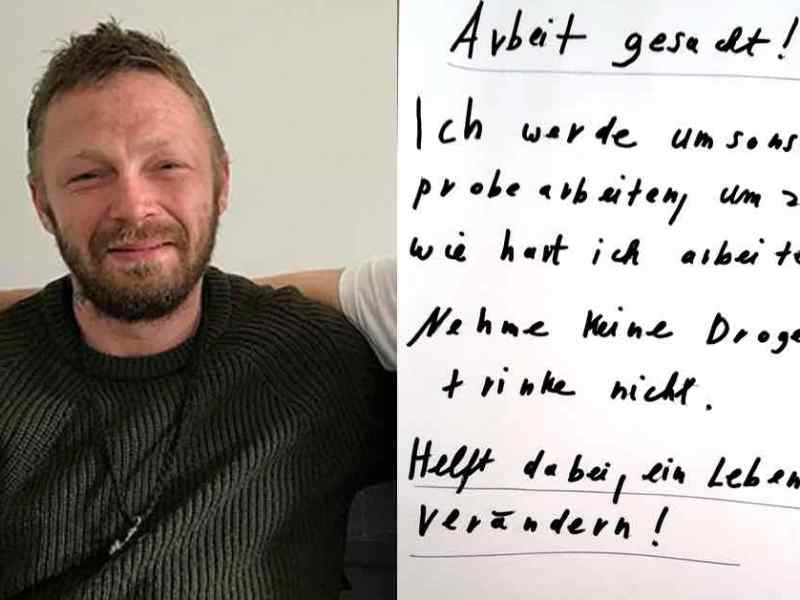 Arbeit gesucht!
Ich werde umsons
probearbeiten, um z
wie hart ich arbeite
Nehme keine Droge
trinke nicht.
Helft dabei, ein Leben
verändern!